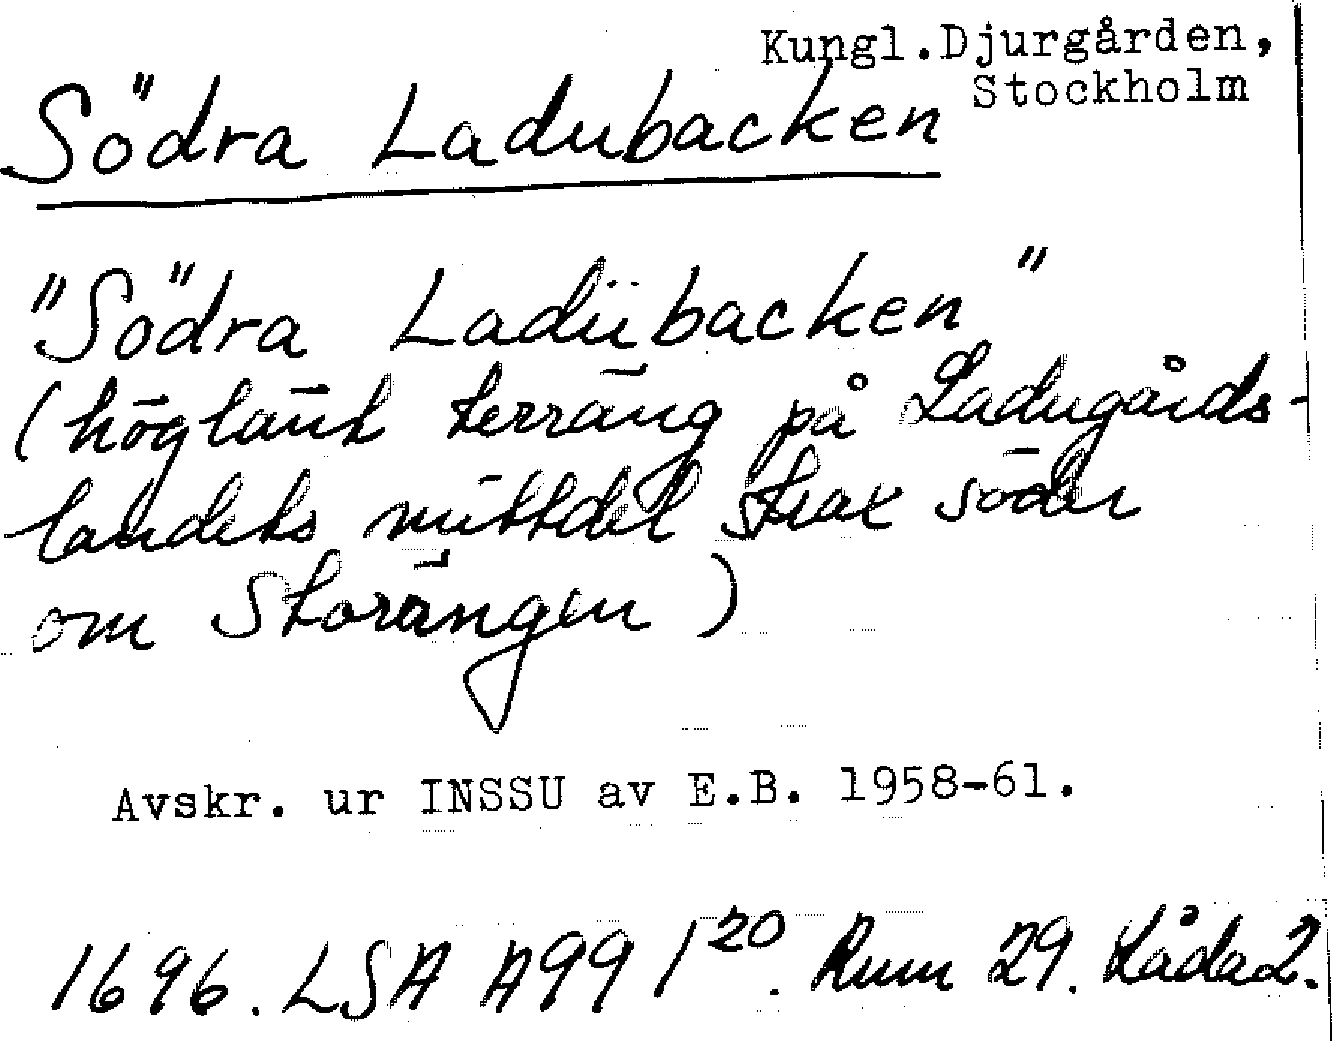 Kungl.Djurgården,
Stockholm
Södra Ladubacken
"Södra Ladübacken"
(höglänt terräng på Ladugårds-
landets mittdel strax söder
om Storängen)
Avskr. ur INSSU av E.B. 1958-61.
1696. LSA A99 1²⁰. Rum 29. Låda 2.